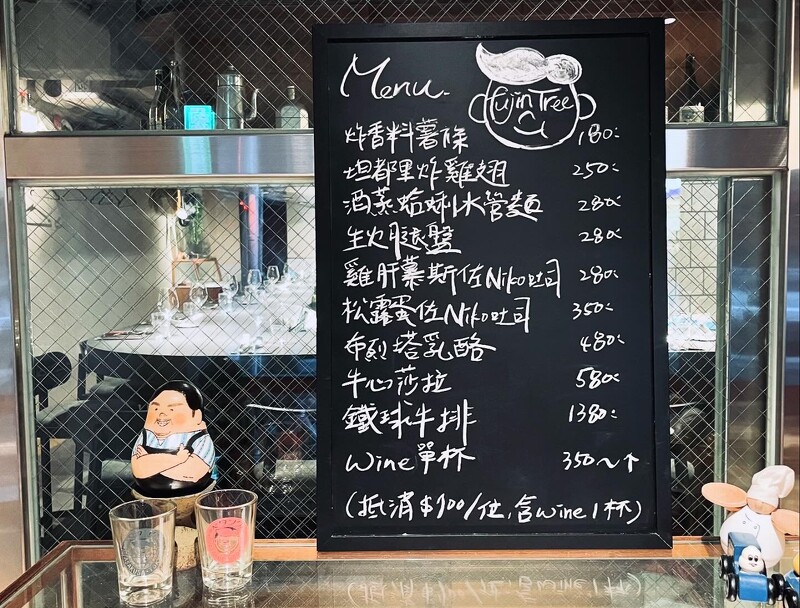 Menu.
Fujin Tree
炸香料薯條 180.-
坦都里炸雞翅 250.-
酒蒸蛤蜊水管麵 280.-
生火腿盤 280.-
雞肝慕斯佐Niko吐司 280.-
松露蛋佐Niko吐司 350.-
布列塔乳酪 480.-
牛心莎拉 580.-
鐵球牛排 1380.-
Wine單杯 350~↑
(抵消 /位,含wine 1杯)